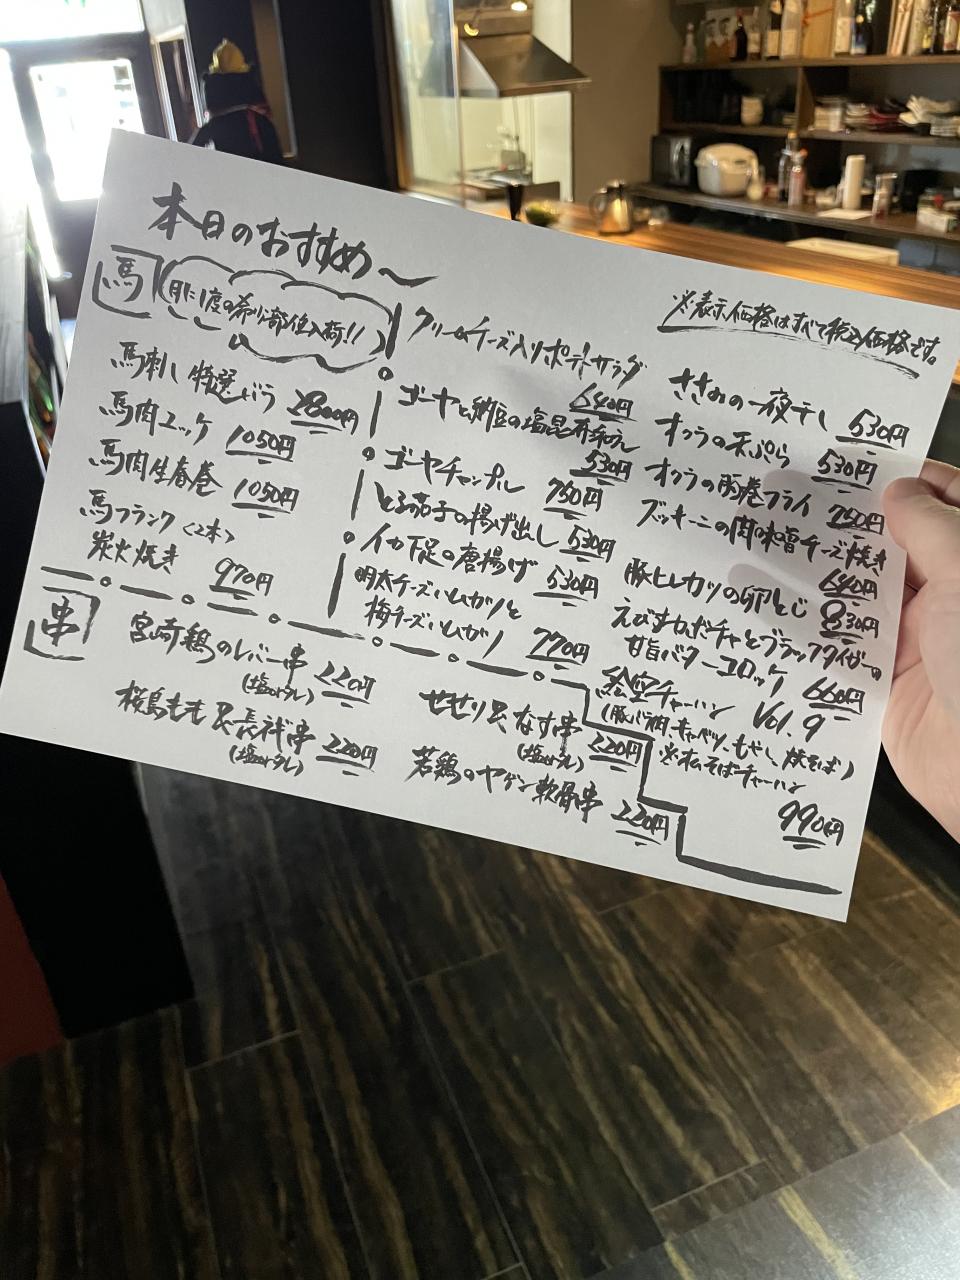 本日のおすすめ〜
※表示価格はすべて税込価格です。
馬
月に1度の希少部位入荷!!
馬刺し特選バラ 2800円
馬肉ユッケ 1050円
馬肉生春巻 1050円
馬フランク〈2本〉
炭火焼き 970円
クリームチーズ入りポテトサラダ
640円
ゴーヤと納豆の塩昆布和え
530円
ゴーヤチャンプル 750円
とろ茄子の揚げ出し 530円
イカ下足の唐揚げ 530円
明太チーズハムカツと
梅チーズハムカツ 770円
ささみの一夜干し 530円
オクラの天ぷら 530円
オクラの豚巻フライ 750円
ズッキーニの肉味噌チーズ焼き
640円
豚ヒレカツの卵とじ 830円
えびすカボチャとブラックタイガーの
甘旨バターコロッケ 660円
絵空チャーハン Vol.9
(豚バラ肉、キャベツ、もやし、焼そば)
※オムそばチャーハン
990円
串
宮崎鶏のレバー串 220円
(塩orタレ)
桜島もも&長ネギ串 220円
(塩orタレ)
せせり&なす串 220円
(塩orタレ)
若鶏のヤゲン軟骨串 220円